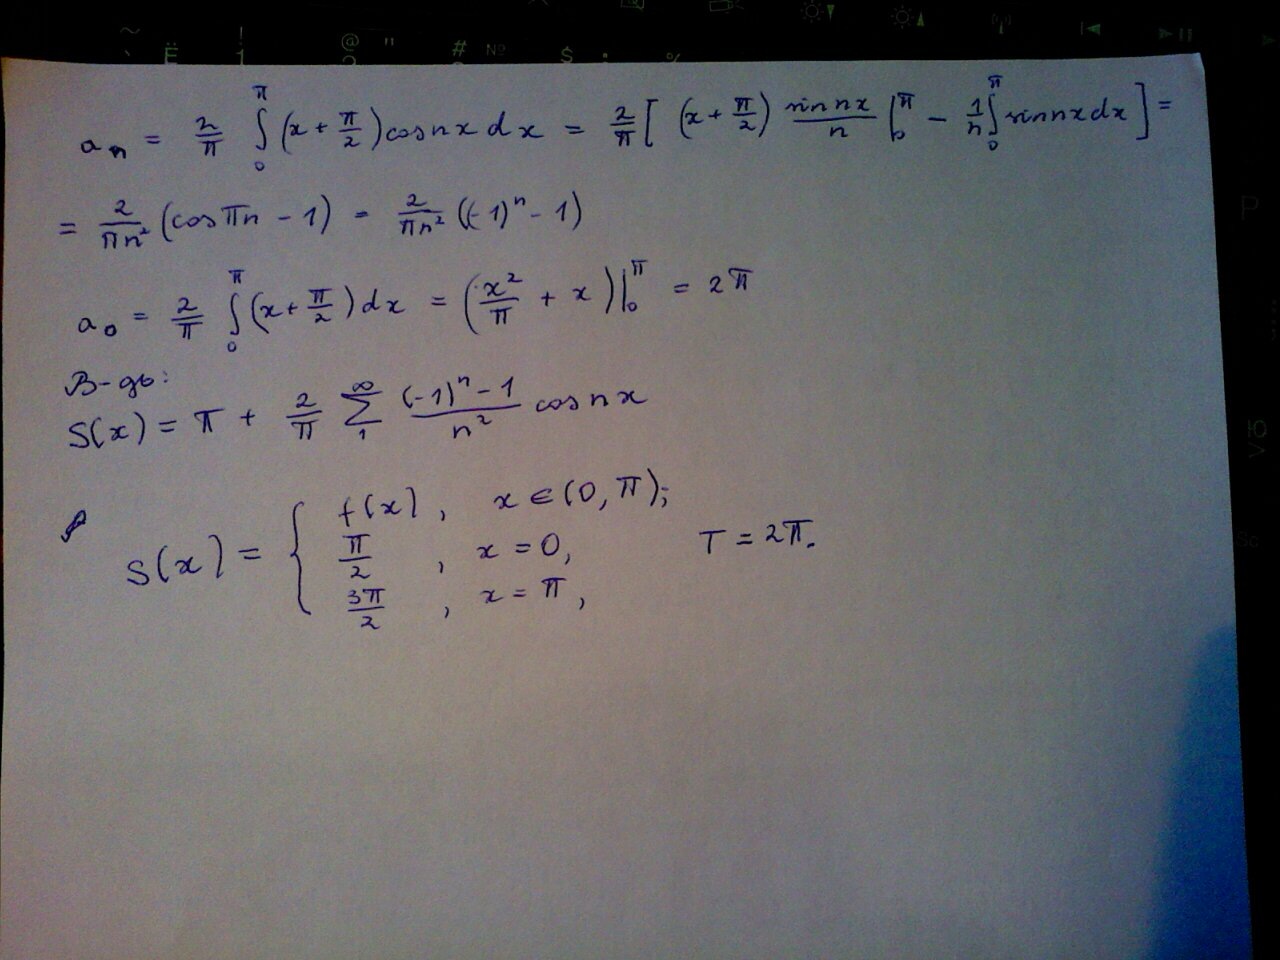 ~ ! @ " # № $ : %
` Ё 1 2
a_n = 2/π ∫₀^π (x + π/2) cos nx dx = 2/π [ (x + π/2) sin nx / n |₀^π − 1/n ∫₀^π sin nx dx ] =
= 2/(πn²) (cos πn − 1) = 2/(πn²) ((-1)ⁿ − 1)
a₀ = 2/π ∫₀^π (x + π/2) dx = (x²/π + x) |₀^π = 2π
В-дь:
S(x) = π + 2/π ∑₁^∞ ((-1)ⁿ − 1)/n² cos nx
S(x) = { f(x), x ∈ (0, π);
π/2, x = 0, T = 2π.
3π/2, x = π,
P
Ю